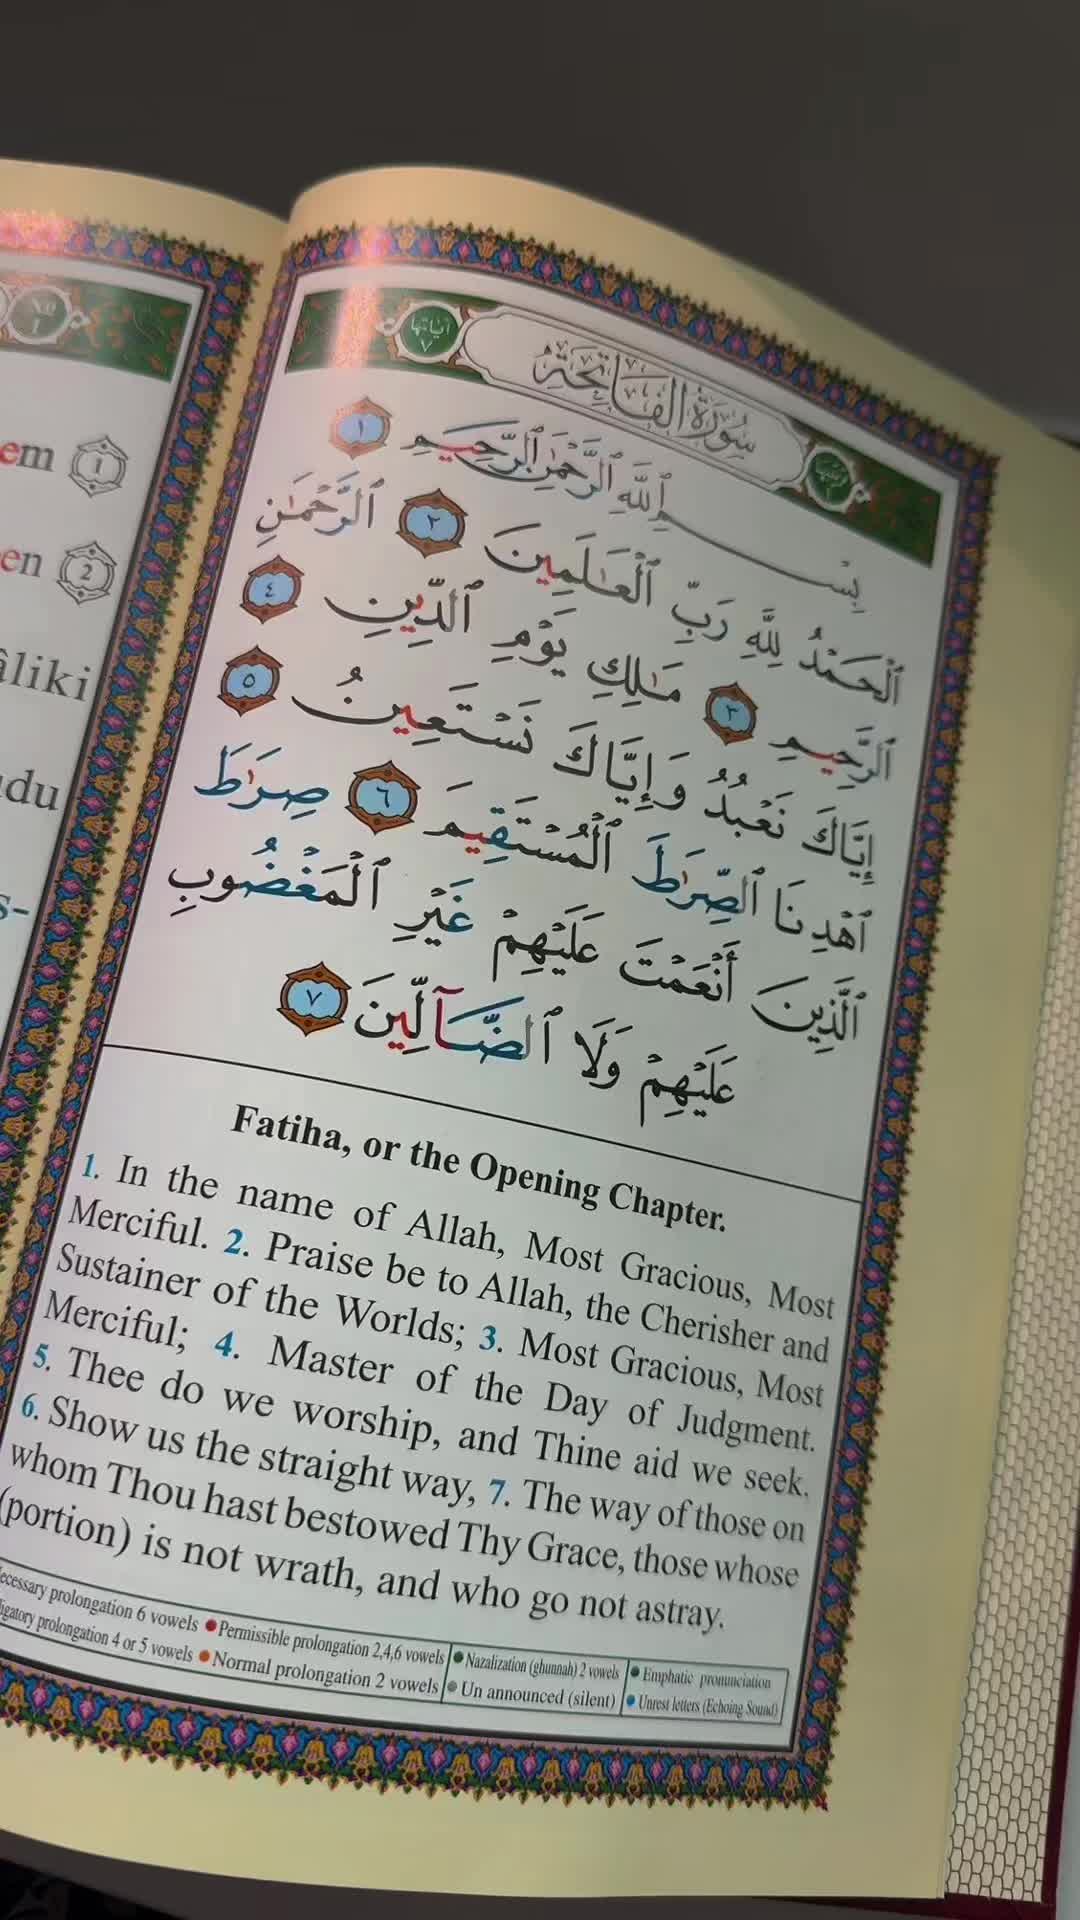 No
1
em 1
en 2
âliki
udu
s-
آياتها
٧
سُورَةُ الفَاتِحَةِ
بِسْمِ ٱللَّهِ ٱلرَّحْمَٰنِ ٱلرَّحِيمِ ١
ٱلْحَمْدُ لِلَّهِ رَبِّ ٱلْعَٰلَمِينَ ٢ ٱلرَّحْمَٰنِ
ٱلرَّحِيمِ ٣ مَٰلِكِ يَوْمِ ٱلدِّينِ ٤
إِيَّاكَ نَعْبُدُ وَإِيَّاكَ نَسْتَعِينُ ٥
ٱهْدِنَا ٱلصِّرَٰطَ ٱلْمُسْتَقِيمَ ٦ صِرَٰطَ
ٱلَّذِينَ أَنْعَمْتَ عَلَيْهِمْ غَيْرِ ٱلْمَغْضُوبِ
عَلَيْهِمْ وَلَا ٱلضَّآلِّينَ ٧
Fatiha, or the Opening Chapter.
1. In the name of Allah, Most Gracious, Most
Merciful. 2. Praise be to Allah, the Cherisher and
Sustainer of the Worlds; 3. Most Gracious, Most
Merciful; 4. Master of the Day of Judgment.
5. Thee do we worship, and Thine aid we seek.
6. Show us the straight way, 7. The way of those on
whom Thou hast bestowed Thy Grace, those whose
(portion) is not wrath, and who go not astray.
ecessary prolongation 6 vowels Permissible prolongation 2,4,6 vowels Nazalization (ghunnah) 2 vowels Emphatic pronunciation
igatory prolongation 4 or 5 vowels Normal prolongation 2 vowels Un announced (silent) Unrest letters (Echoing Sound)